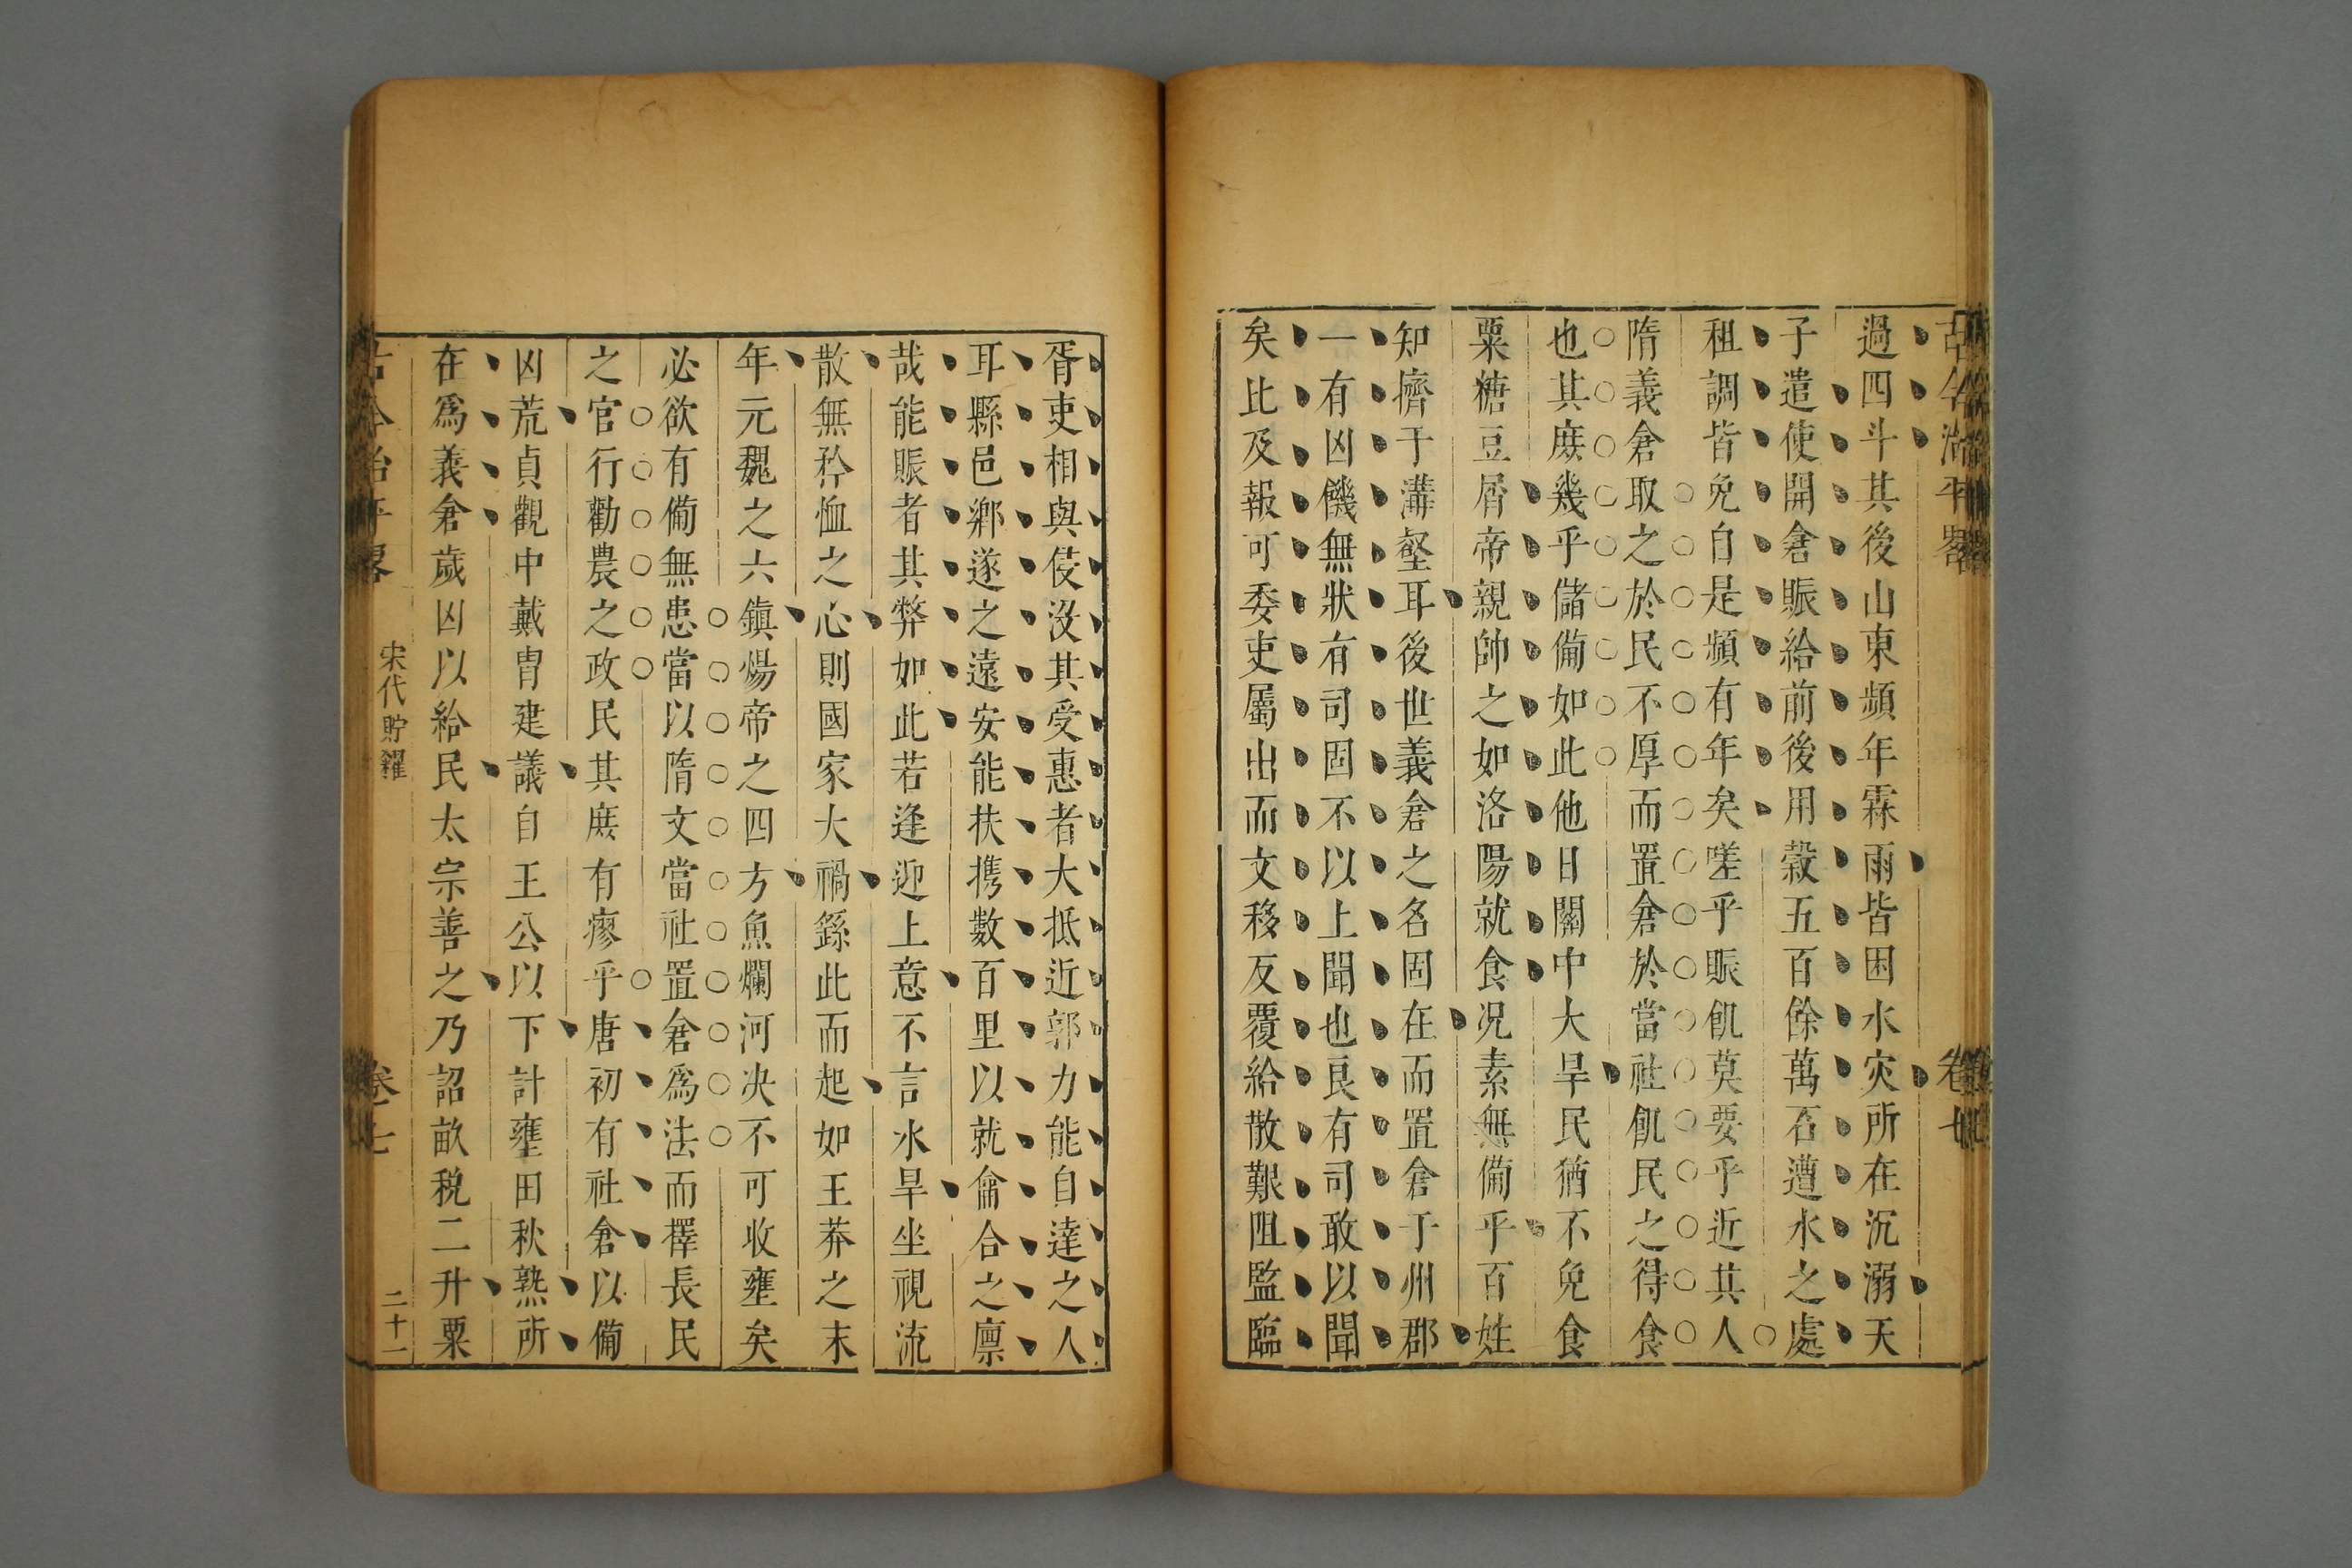 古今治平畧 卷七
過四斗其後山東頻年霖雨皆困水灾所在沉溺天
子遣使開倉賑給前後用穀五百餘萬石遭水之處
租調皆免自是頻有年矣嗟乎賑飢莫要乎近其人
隋義倉取之於民不厚而置倉於當社飢民之得食
也其庶幾乎儲備如此他日關中大旱民猶不免食
粟糖豆屑帝親帥之如洛陽就食况素無備乎百姓
知擠于溝壑耳後世義倉之名固在而置倉于州郡
一有凶饑無狀有司固不以上聞也良有司敢以聞
矣比及報可委吏屬出而文移反覆給散艱阻監臨
胥吏相與侵沒其受惠者大抵近郭力能自達之人
耳縣邑鄉遂之遠安能扶携數百里以就龠合之廪
哉能賑者其弊如此若逢迎上意不言水旱坐視流
散無矜恤之心則國家大禍繇此而起如王莽之末
年元魏之六鎮煬帝之四方魚爛河决不可收壅矣
必欲有備無患當以隋文當社置倉為法而擇長民
之官行勸農之政民其庶有瘳乎唐初有社倉以備
凶荒貞觀中戴胄建議自王公以下計墾田秋熟所
在爲義倉歲凶以給民太宗善之乃詔畝税二升粟
古今治平畧 宋代貯糴 卷七 二十一